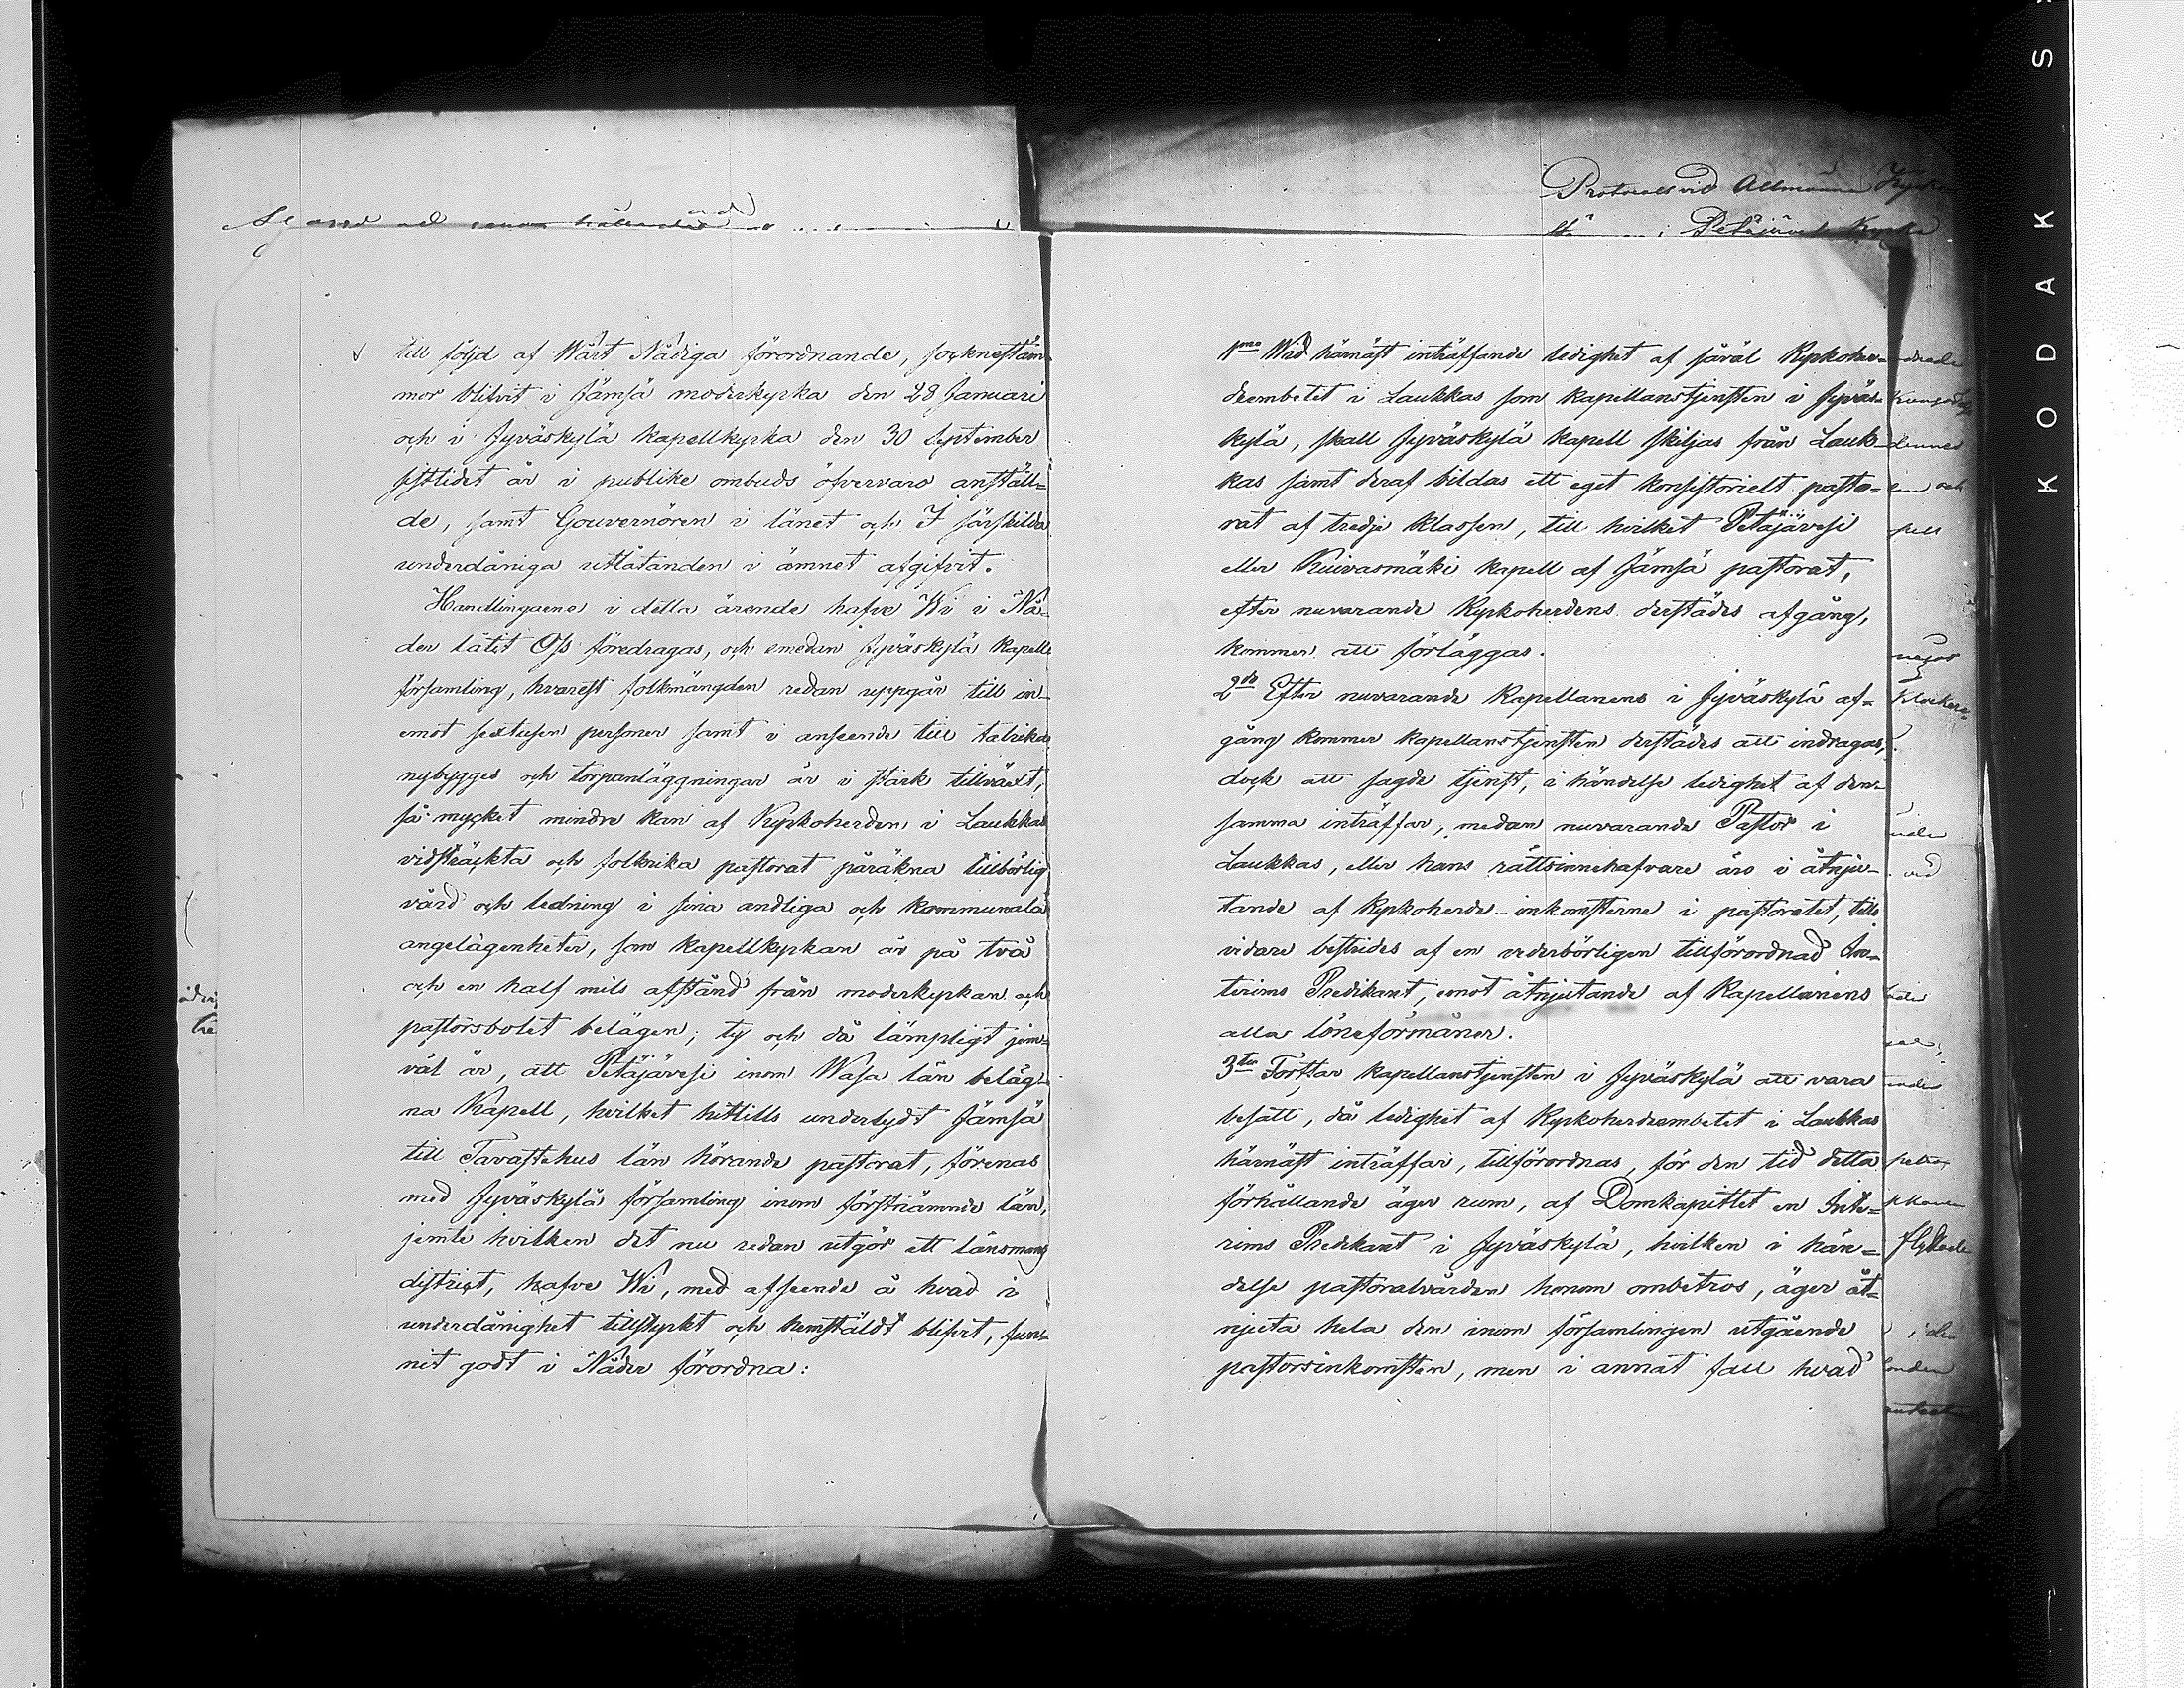 till följd af Wårt Nådiga förordnande, sockneståm-
mor blifvit i Jämsä moderkyrka den 28 Januari
och i Jyväskylä kapellkyrka den 30 September
sistlidet år i publike ombuds öfvervaro anställ-
de, samt Gouvernören i länet och I särskilda
underdåniga utlåtanden i ämnet afgifvit.
Handlingarne i detta ärende hafve Wi i Nå-
der låtit Oss föredragas, och emedan Jyväskylä kapells
församling, hvarest folkmängden redan uppgår till in-
emot sextusen personer samt i anseende till talrika
nybygges och torpanläggningar är i stark tillväxt,
så mycket mindre kan af Kyrkoherden i Laukkas
vidsträckta och folkrika pastorat påräkna tillbörlig
vård och ledning i sina andliga och kommunala
angelägenheter, som kapellkyrkan är på två
och en half mils afstånd från moderkyrkan och
pastorsbolet belägen; ty och då lämpligt jem-
väl är, att Petäjävesi inom Wasa län beläg-
na Kapell, hvilket hittills underlydt Jämsä
till Tavastehus län hörande pastorat, förenas
med Jyväskylä församling inom förstnämnde län,
jemte hvilken det nu redan utgör ett länsmans
district, hafve Wi, med afseende å hvad i
underdånighet tillstyrkt och hemstäldt blifvit, fun-
nit godt i Nåder förordna:
Protocoll vid Allmänna
i Petäjävesi Kyrka
1mo Wid härnäst inträffande ledighet af såväl Kyrkoher-
deembetet i Laukkas som kapellanstjensten i Jyväs-
kylä, skall Jyväskylä kapell skiljas från Lauk-
kas samt deraf bildas ett eget konsistorielt pasto-
rat af tredje klassen, till hvilket Petäjävesi
eller Kuivasmäki kapell af Jämsä pastorat,
efter nuvarande Kyrkoherdens derstädes afgång,
kommer att förläggas.
2do Efter nuvarande Kapellanens i Jyväskylä af-
gång kommer kapellanstjensten derstädes att indragas,
dock att sagde tjenst, i händelse ledighet af den-
samma inträffar, medan nuvarande Pastor i
Laukkas, eller hans rättsinnehafvare äro i åtnju-
tande af Kyrkoherde-inkomsterne i pastoratet, tills
vidare bestrides af en vederbörligen tillförordnad In-
terims Predikant, emot åtnjutande af Kapellanens
alla löneförmåner.
3tio Torftar kapellanstjensten i Jyväskylä att vara
besatt, då ledighet af Kyrkoherdeembetet i Laukkas
härnäst inträffar, tillförordnas, för den tid detta
förhållande äger rum, af Domkapitlet en Inte-
rims Predikant i Jyväskylä, hvilken i hän-
delse pastoralvården honom ombetros, äger åt-
njuta hela den inom församlingen utgående
pastorsinkomsten, men i annat fall hvad